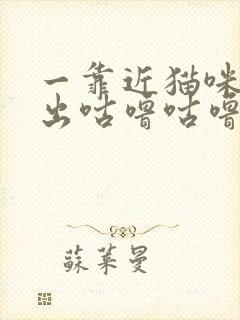 一靠近猫咪
出咕噜咕噜
蘇葉曼